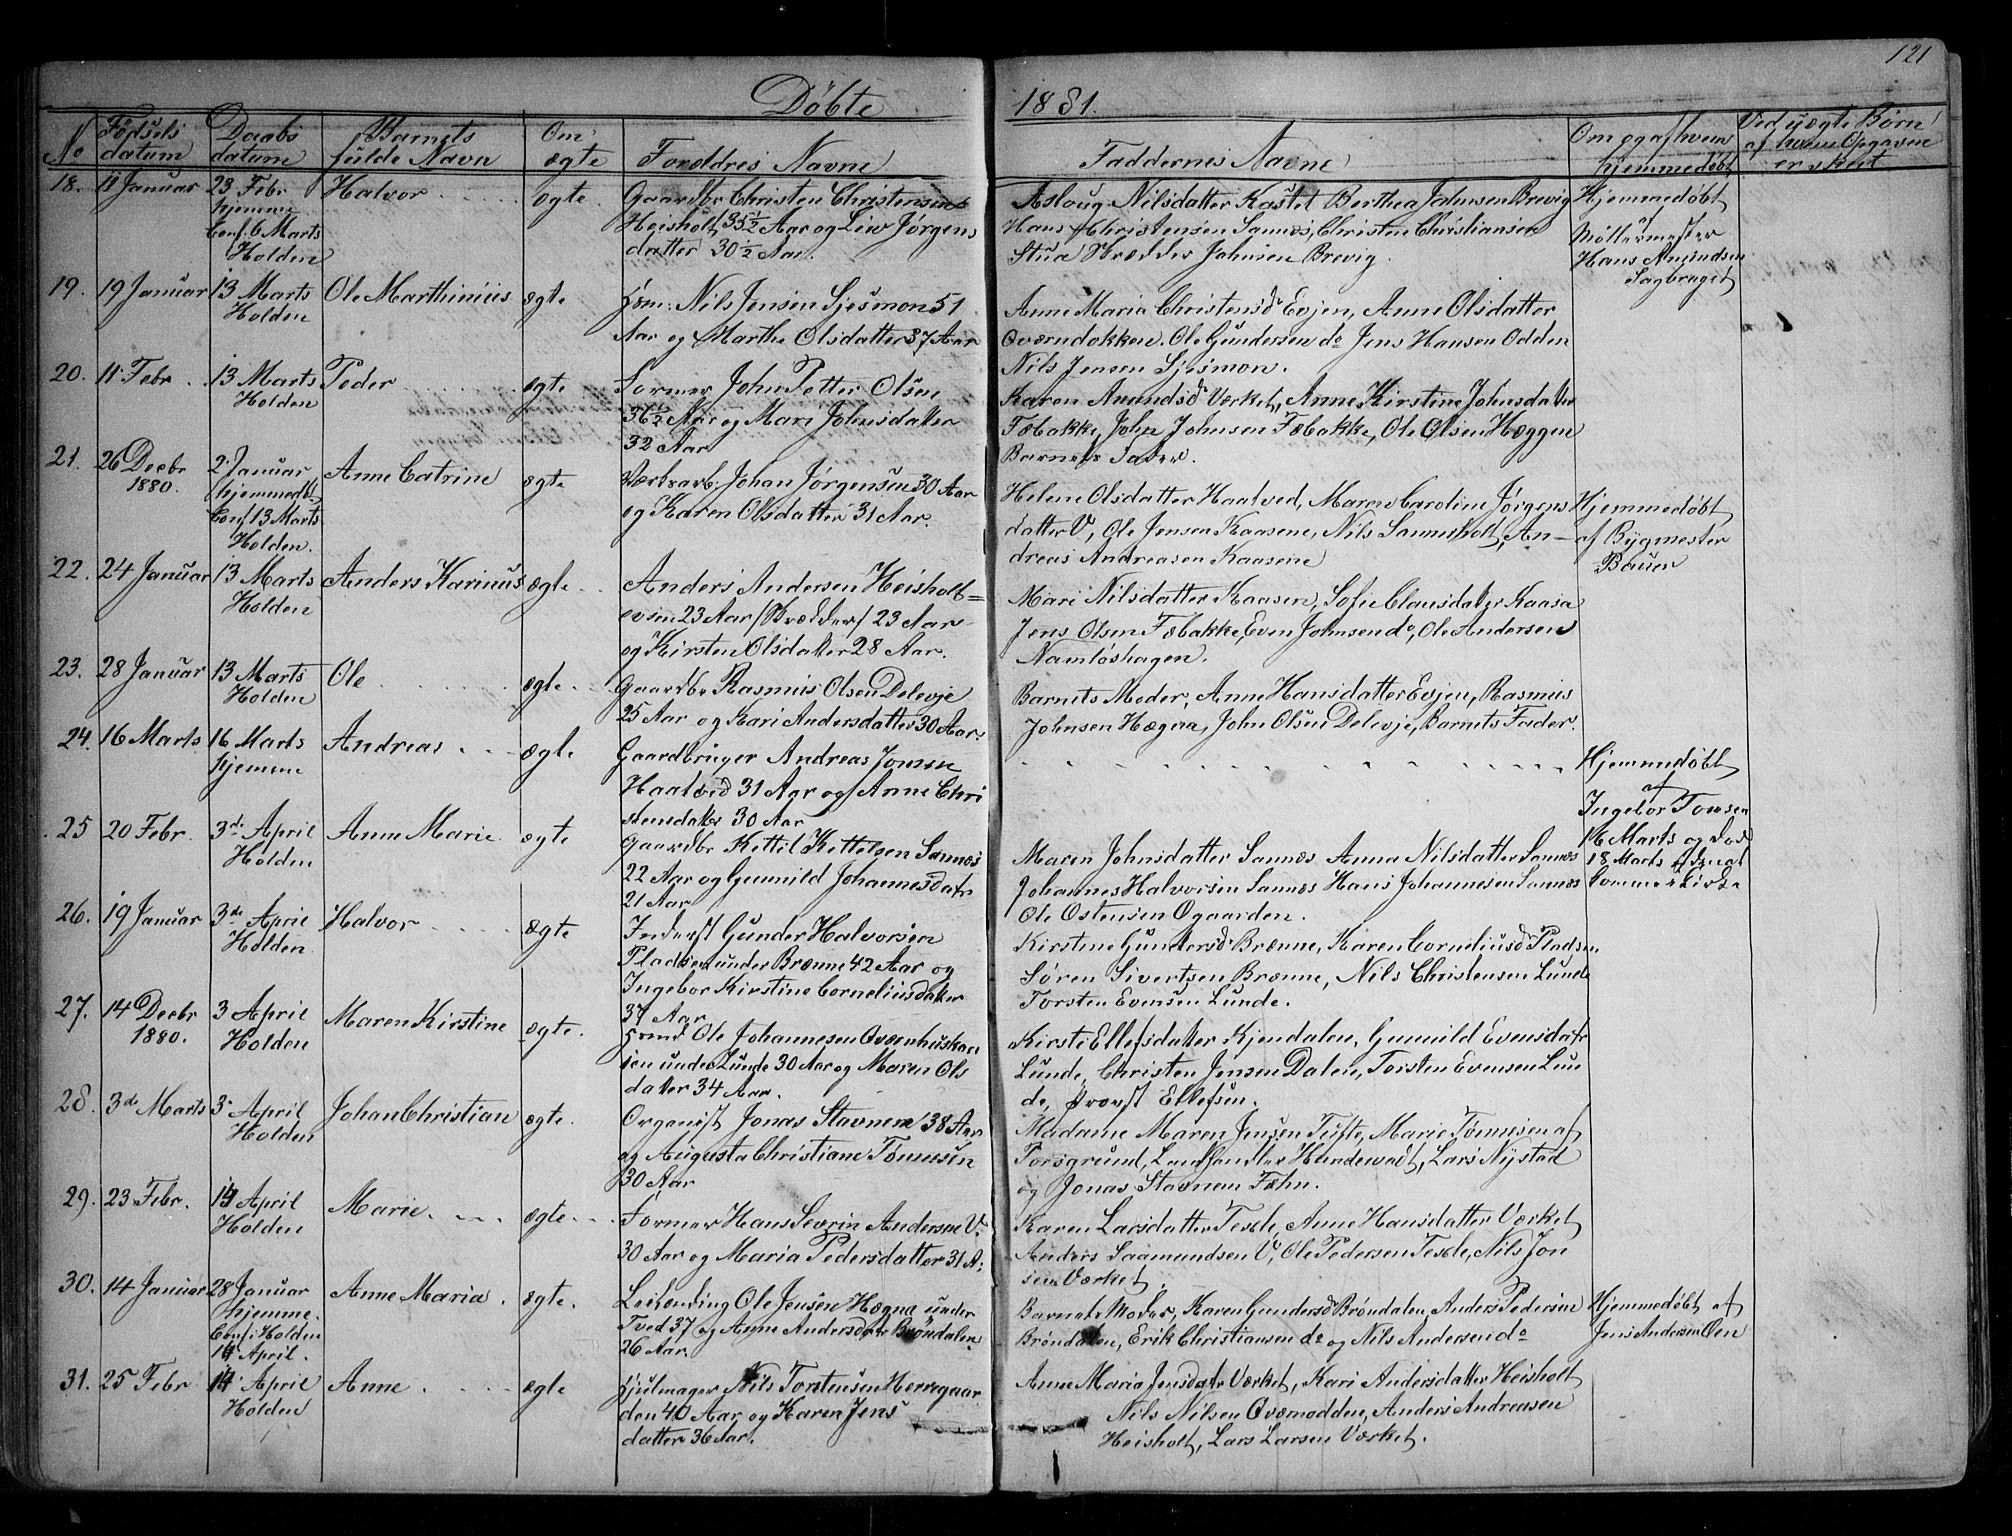 121
Döbte 1881.
No
Födsels datum
Daabs datum
Barnets fulde Navn
Om ægte
Forældres Navne
Faddernes Navne
Om og af hvem hjemmedøbt
Ved uægte Børn af hvem Opgaven er skeet
18. 11 Januar 23 Febr Halvor ægte Gaardbr Christen Christensen
hjemme Heisholt 35½ Aar og Liv Jørgens
Conf. 6 Marts datter 30½ Aar.
Holden
Aslaug Nilsdatter Kastet Berthea Johnsen Brevig
Hans Christensen Sannes, Christen Christiansen
Stua Skrædder Johnsen Brevig.
Hjemmedøbt
Möllermester
Hans Amundsen
Sagbruget
19. 19 Januar 13 Marts Ole Marthinius ægte Hsm: Nils Jensen Sjesmon 51
Holden Aar og Marthe Olsdatter 37 Aar
Anne Maria Christensd Evjen, Anne Olsdatter
Qværndokken. Ole Gundersen do Jens Hansen Odden
Nils Jensen Sjesmon.
20. 11 Febr. 13 Marts Peder ægte Former John Petter Olsen
Holden 36½ Aar og Mari Johnsdatter
32 Aar
Karen Amundsd Værket, Anne Kirstine Johnsdatter
Fæbakke, John Johnsen Fæbakke, Ole Olsen Hæggen
Barnets Fader.
21. 26 Decbr 2 Januar Anne Catrine ægte Værksarb. Johan Jørgensen 30 Aar
1880. hjemmedøbt og Karen Olsdatter 31 Aar.
Conf 13 Marts
Holden.
Helene Olsdatter Haatved, Maren Caroline Jørgens
datter V, Ole Jensen Kaasene, Nils Sannesholt, An-
dreas Andreasen Kaasene
Hjemmedøbt
af Bygmester
Bauer
22. 24 Januar 13 Marts Anders Karinus ægte Anders Andersen Heisholt=
Holden 23 Aar /Skrædder/ 23 Aar
og Kirsten Olsdatter 28 Aar.
Mari Nilsdatter Kaasen, Sofie Clausdatter Kaasa
Jens Olsen Fæbakke, Even Johnsen do, Ole Andersen
Namløshagen.
23. 28 Januar 13 Marts Ole ægte Gaardbr Rasmus Olsen Delevje
Holden 25 Aar og Kari Andersdatter 30 Aar.
Barnets Moder, Anne Hansdatter Evjen, Rasmus
Johnsen Hægna, John Olsen Delevje, Barnets Fader.
24. 16 Marts 16 Marts Andreas ægte Gaardbruger Andreas Jonsen
hjemme Haatved 31 Aar og Anne Chri
stensdatter 30 Aar
Hjemmedøbt
af
Ingebor Tonsen
16 Marts og død
18 Marts
25 20 Febr. 3d April Anne Marie ægte Gaardbr Kettil Kettelsen Sannes
Holden 22 Aar og Gunnild Johannesdatr
21 Aar
Maren Johnsdatter Sannes Anna Nilsdatter Sannes
Johannes Halvorsen Sannes Hans Johannesen Sannes
Ole Ostensen Ogaarden.
26. 19 Januar 3de April Halvor ægte Inderst Gunder Halvorsen
Holden Pladsen under Brænne 42 Aar og
Ingebor Kirstine Corneliusdatter
37 Aar
Kirstine Gundersd Brænne, Karen Corneliusd Pladsen
Søren Sivertsen Brænne, Nils Christensen Lunde
Torsten Evensen Lunde.
27. 14 Decbr 3 April Maren Kirstine ægte. Hsmd Ole Johannesen Qværnhuskaa
1880. Holden sen under Lunde 30 Aar og Maren Ols
datter 34 Aar.
Kirsti Ellefsdatter Kjendalen, Gunnild Evensdatr
Lunde, Christen Jensen Dalen, Torsten Evensen Lun
de, Provst Ellefsen.
28. 3de Marts 3. April Johan Christian ægte. Organist Jonas Stavnem 38 Aar
Holden og Augusta Christiane Tønnesen
30 Aar
Madame Maren Jensen Tufte, Marie Tønnesen af
Porsgrund, Landhandler Hundevadt, Lars Nystad
og Jonas Stavnem Fæhn.
29. 23 Febr. 14 April Marie ægte Former Hans Severin Andersen V.
Holden 30 Aar og Maria Pedersdatter 31 A:
Karen Larsdatter Texle, Anne Hansdatter Værket
Anders Saamundsen V, Ole Pedersen Texle, Nils Jon
sen Værket.
30. 14 Januar 28 Januar Anne Maria. ægte. Leilending Ole Jensen Hægna under
hjemme. Tved 37 og Anne Andersdatr Brøndalen
Conf: Holden 26 Aar.
14 April.
Barnets Moder, Karen Gundersd Brøndalen, Anders Pedersen
Brøndalen, Erik Christiansen do og Nils Andersen do
Hjemmedøbt af
Jens Andersen Oen
31. 25 Febr 14 April Anne ægte Hjulmager Nils Torstensen Herregaar
Holden den 40 Aar og Karen Jens
datter 36 Aar.
Anne Maria Jensdatr Værket, Kari Andersdatter Heisholt
Nils Nilsen Qværnodden, Anders Andreasen
Heisholt, Lars Larsen Værket.